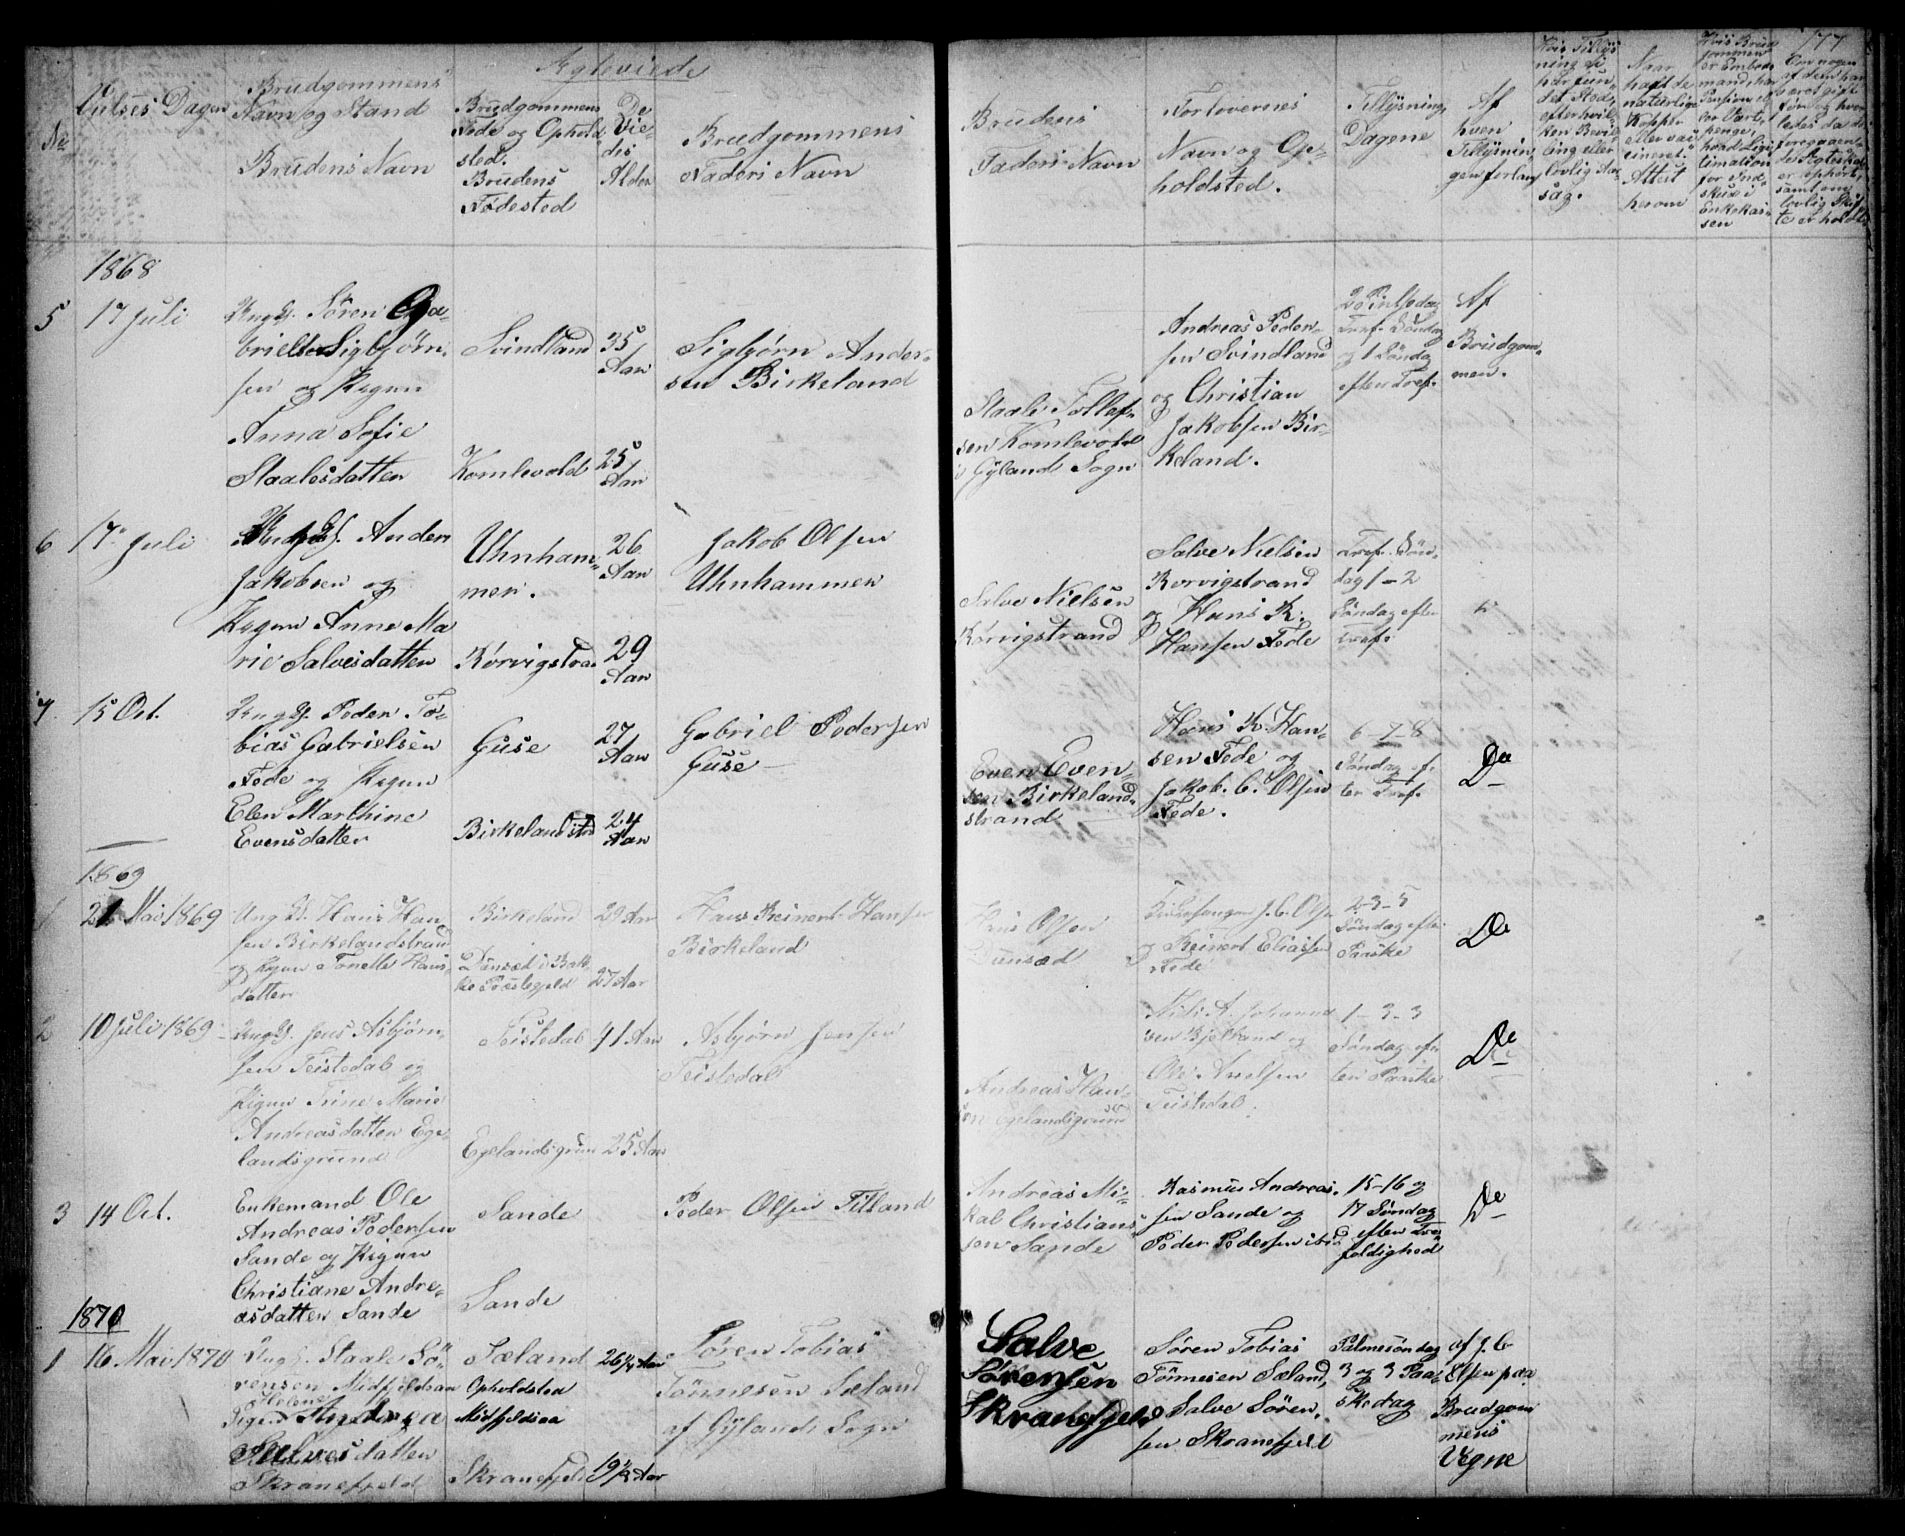 Ægteviede
177
No
Vielses Dagen
Brudgommens
Navn og Stand
Brudens Navn
Brudgommens
Føde og Ophold-
sted.
Brudens
Fødested
De
Vie-
des
Alder
Brudgommens
Faders Navn
Brudens
Faders Navn
Forlovernes
Navn og Op-
holdsted.
Tillysnings
Dagene
Af
hvem
Tillysnin-
gen forlan
Hvis Tillys
ning ei
har fun-
det Sted,
efter hvil-
ken Bevil-
ling eller
lovlig Aar-
sag.
Naar
havt de
naturlige
Kopper
eller vac-
cineret.
Attest
herom
Om nogen
af dem har
været gift
før og hvor-
ledes da det
foregaaen-
de Ægteskab
er ophørt,
samt om
lovlig Skif-
te er holdt
1868
5
17 Juli
Ungk. Søren Ga-
brielsen Sigbjørn-
sen og Pigen
Anna Sofie
Staalesdatter
Svindland
Komlevold
35
Aar
25
Aar
Sigbjørn Ander-
sen Birkeland
Staale Tollef-
sen Komlevold
i Gyland Sogn
Andreas Peder-
sen Svindland
og Christian
Jakobsen Bir-
keland.
2 Pintsedag
Tref. Søndag
og 1 Søndag
efter Tref.
Af
Brudgom-
men.
6
17 Juli
Ungk. Anders
Jakobsen og
Pigen Anne Ma
rie Salvesdatter
Uhnham-
mer.
Rørvigstrand
26
Aar
29
Aar
Jakob Olsen
Uhnhammer
Salve Nielsen
Rørvigstrand
Salve Nielsen
Rørvigstrand
og Hans R.
Hansen Fede
Tref. Søn-
dag 1 - 2
Søndag efter
Tref.
7
15 Oct.
Ungk. Peder To-
bias Gabrielsen
Fede og Pigen
Elen Marthine
Evensdatter
Guse
Birkelandstrd
27
Aar
24
Aar
Gabriel Pedersen
Guse
Even Even-
sen Birkeland-
strand
Hans R. Han-
sen Fede og
Jakob. C. Olsen
Fede.
6 - 7 - 8
Søndag ef-
ter Tref.
Do
1869
1
21 Mai 1869
Ungk. Hans Han-
sen Birkelandstrand
og Pigen Tonette Hans-
datter
Birkeland
Dunsæd i Bak-
ke Præstegjeld
29 Aar
27 Aar
Hans Reinert Hansen
Birkeland
Hans Olsen
Dunsæd
Kirkesanger J. C. Olsen
og Reinert Eliassen
Fede
2 - 3 - 5
Søndag efter
Paaske
Do
2
10 Juli 1869
Ungk. Jens Asbjørn-
sen Feistedal og
Pigen Trine Marie
Andreasdatter Ege-
landsgrund
Feistedal
Egelandsgrund
41 Aar
25 Aar
Asbjørn Jensen
Feistedal
Andreas Han-
sen Egelandsgrund
Nils A. Johanne
sen Bjelland og
Ole Axelsen
Feistedal.
1 - 3 - 3
Søndag ef-
ter Paaske
Do
3
14 Oct.
Enkemand Ole
Andreas Pedersen
Sande og Pigen
Christiane Andre-
asdatter Sande
Sande
Sande
Peder Olsen Titland
Andreas Mi-
kal Christians-
sen Sande
Rasmus Andreas-
sen Sande og
Peder Pedersen ibid
15-16 og
17 Søndag
efter Tre-
foldighed
Do
1870
1
16 Mai 1870
Ungk. Staale Sø-
rensen Midfjeldsaa
Helene
Pigen Andrea
Salvesdatter
Skranefjeld
Sæland
Opholdsted
Midfjeldsaa
Skranefjeld
26 1/4 Aar
19 1/2 Aar
Søren Tobias
Tønnesen Sæland
af Gylands Sogn
Salve
Sørensen
Skranefjeld
Søren Tobias
Tønnesen Sæland,
Salve Søren-
sen Skranefjeld
Palmesøndag
3 og 3 Paa-
skedag
af J. C
Olsen paa
Brudgom
mens
Vegne